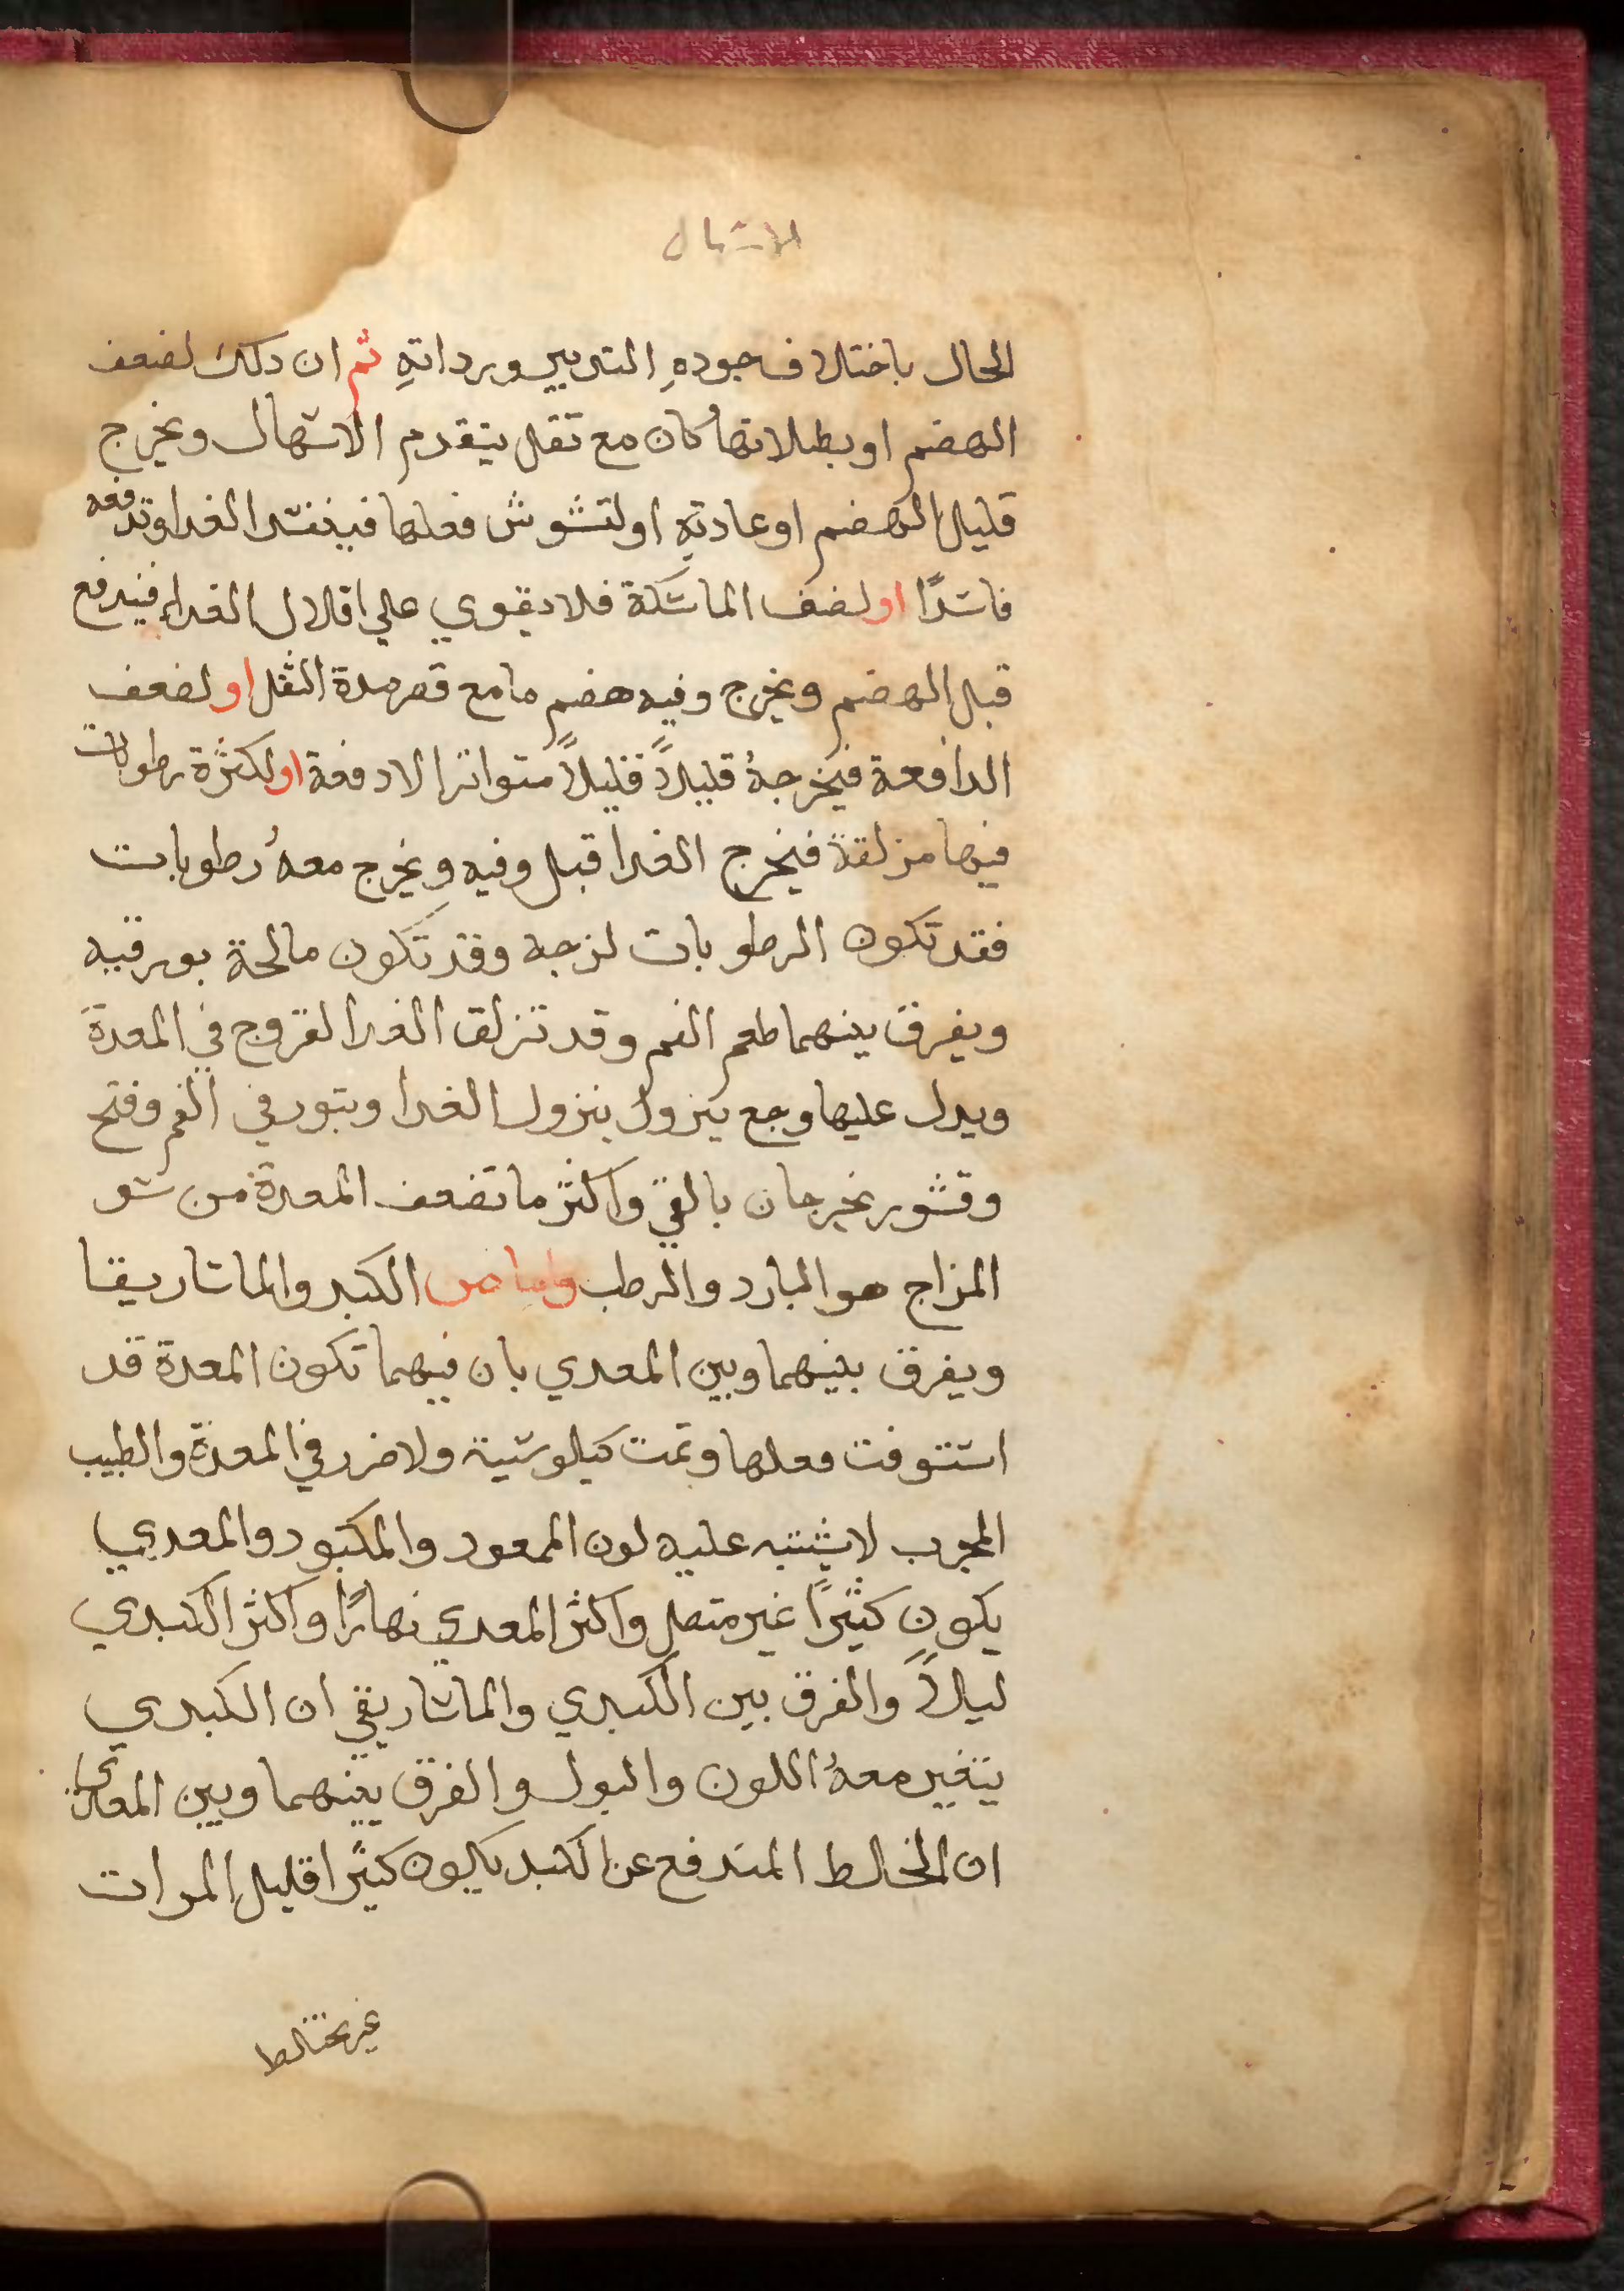 الاسهال
الحال باختلاف جودهِ التدبير ورداتهِ ثم ان دلك لضعف
الهضم او بطلانها كان مع ثقل يتقدم الاسهال ويخرج
قليل الهضم او عادته او لتشوش فعلها فيفسد الغدا وتدفعه
فاسدًا او لضعف الماسكة فلا يقوي علي اقلال الغداء فيندفع
قبل الهضم ويخرج وفيه هضم ما مع قصر مدة الثقل او لضعف
الدافعة فيخرجهُ قليلاً قليلاً متواترا لا دفعة او لكثرة رطوبات
فيها مزلقة فيخرج الغدا قبل وفيه ويخرج معهُ رطوبات
فقد تكون الرطوبات لزجه وقد تكون مالحة بورقيه
ويفرق بينهما طعم الفم وقد تزلق الغدا لقروح في المعدة
ويدل عليها وجع يزول بنزول الغدا وبثور في الفم وفتح
وقشور يخرجان بالقي واكثر ما تضعف المعدة من سو
المزاج هو البارد والرطب واما من الكبد والماساريقا
ويفرق بينهما وبين المعدي بان فيهما تكون المعدة قد
استوفت فعلها وتمت كيلوسية ولا ضرر في المعدة والطبيب
المجرب لا يشتبه عليه لون الممعود والمكبود والمعدي
يكون كثيرًا غير متصل واكثر المعدي نهارًا واكثر الكبدي
ليلاً والفرق بين الكبدي والماساريقي ان الكبدي
يتغير معهُ اللون والبول والفرق بينهما وبين المعاي
ان الخالط المندفع عن الكبد يكون كثيرا قليل المرات
غير مختلط